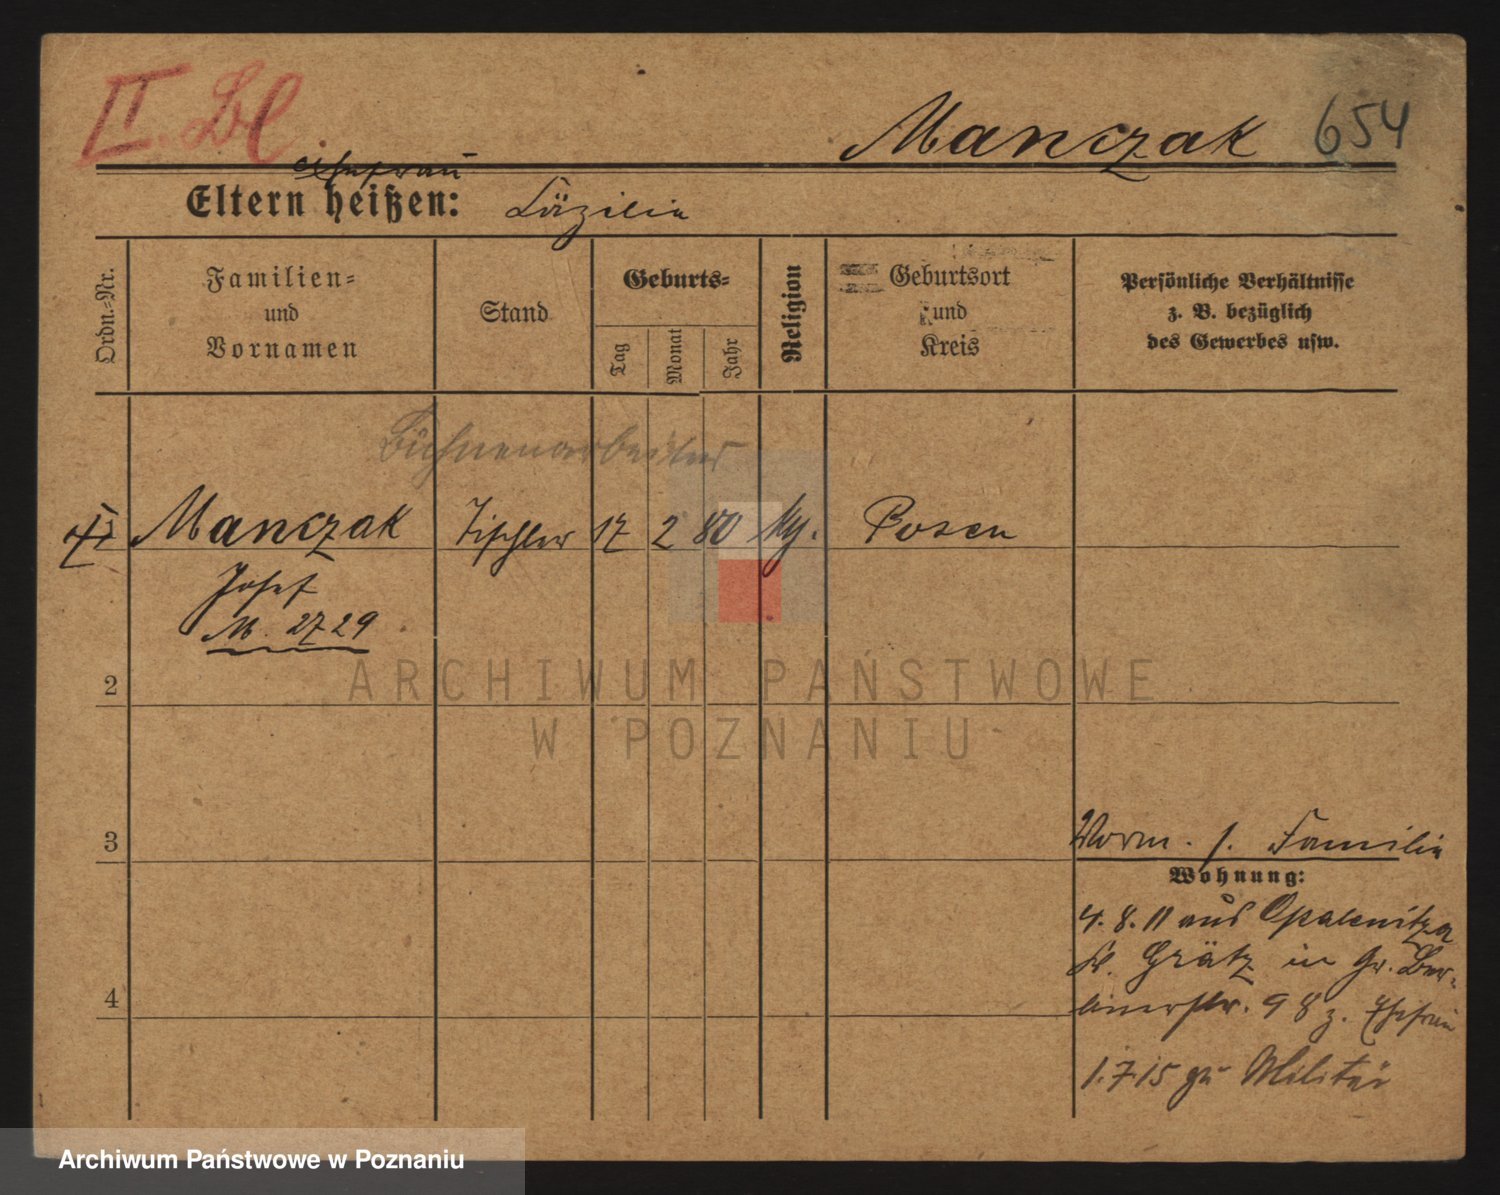 II. Bl.
Manczak 654
Ehefrau
Eltern heißen: Cäzilie
Ordn.-Nr.
Familien-
und
Vornamen
Stand
Geburts-
Tag
Monat
Jahr
Religion
Geburtsort
und
Kreis
Persönliche Verhältnisse
z. B. bezüglich
des Gewerbes usw.
Bühnenarbeiter
Manczak Tischler 17 2 80 Posen
Josef
M. 2729
2
3
4
Vorm. s. Familie
Wohnung:
4.8.11 aus Opalenitza
Kr. Grätz in Gr. Ber-
linerstr. 98 z. Ehefrau
1.7.15 zu Militär
ARCHIWUM PAŃSTWOWE
W POZNANIU
Archiwum Państwowe w Poznaniu